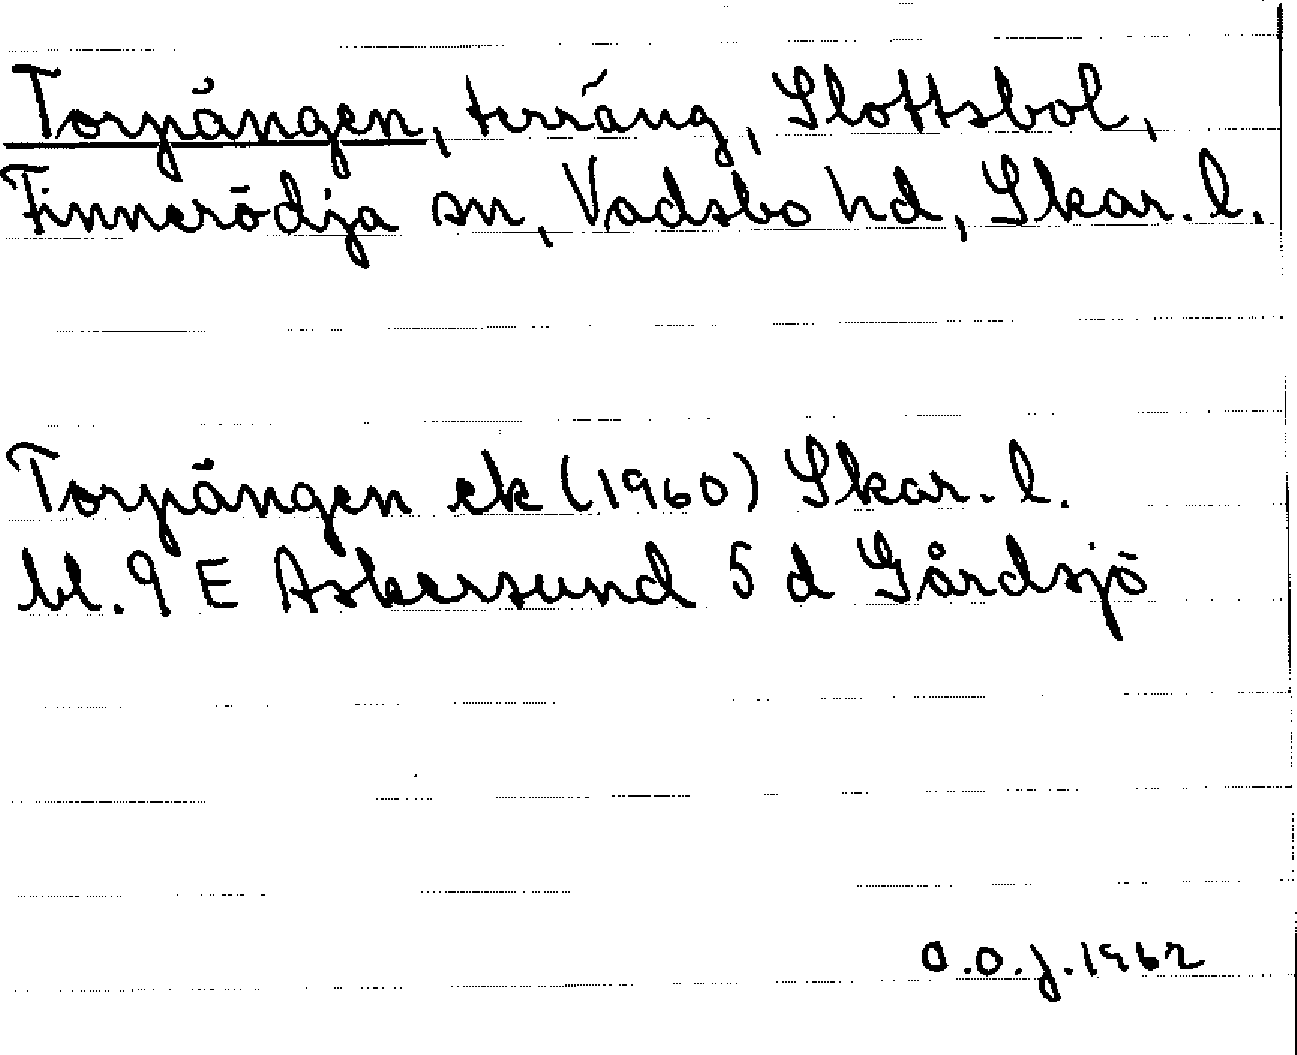 Torpängen, terräng, Slottsbol,
Finnerödja sn, Vadsbo hd, Skar. l.
Torpängen ek (1960) Skar. l.
bl. 9 E Askersund 5 d Gårdsjö
O.O.J. 1962